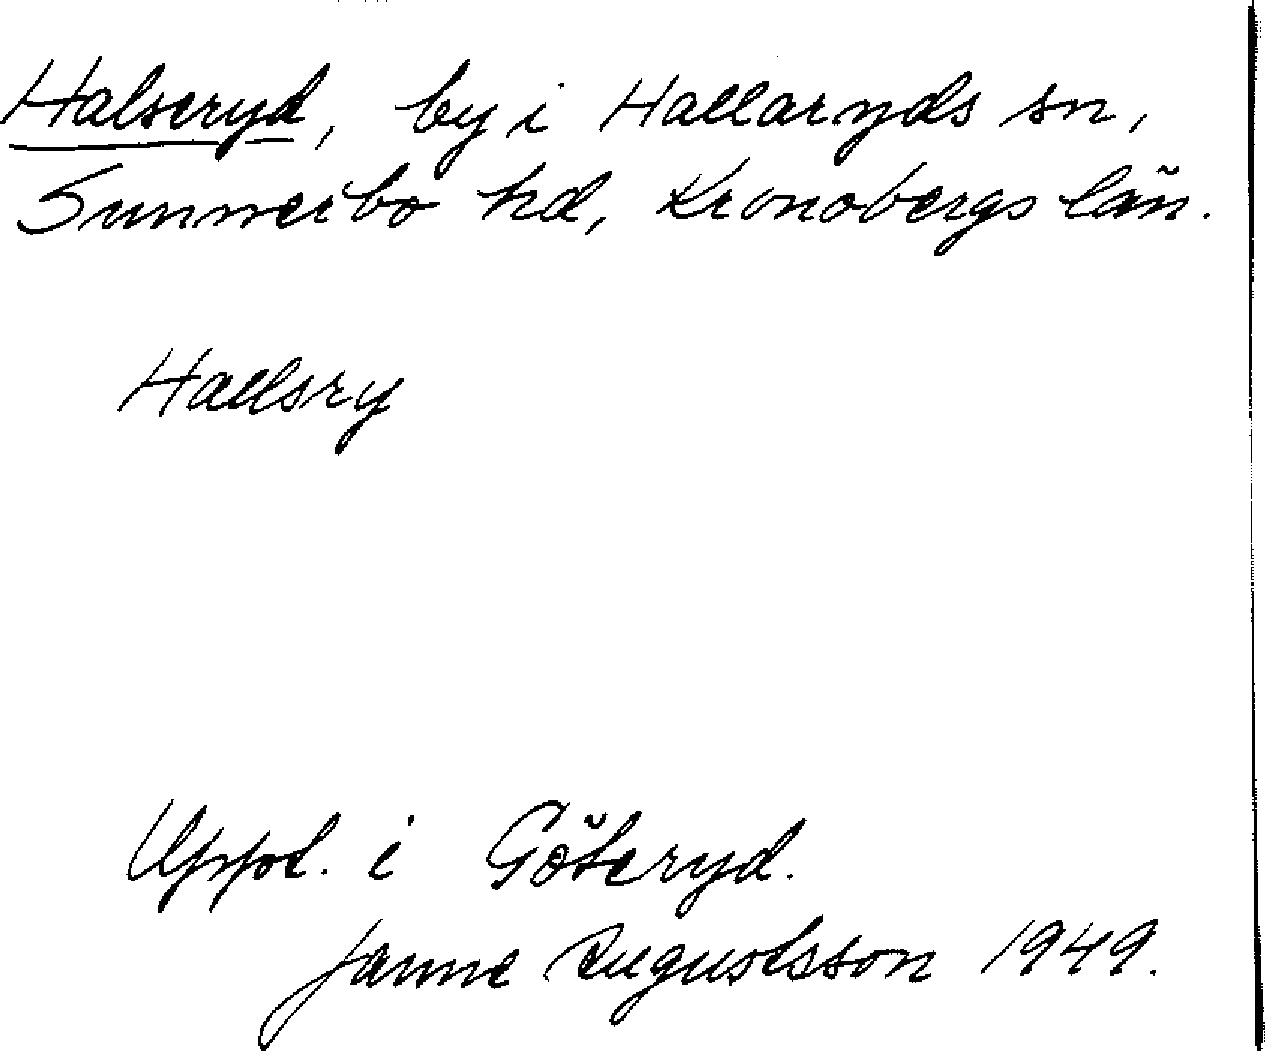 Halseryd, by i Hallaryds sn,
Sunnerbo hd, Kronobergs län.
Hallsry
Uppt. i Göteryd.
Janne Augustsson 1949.